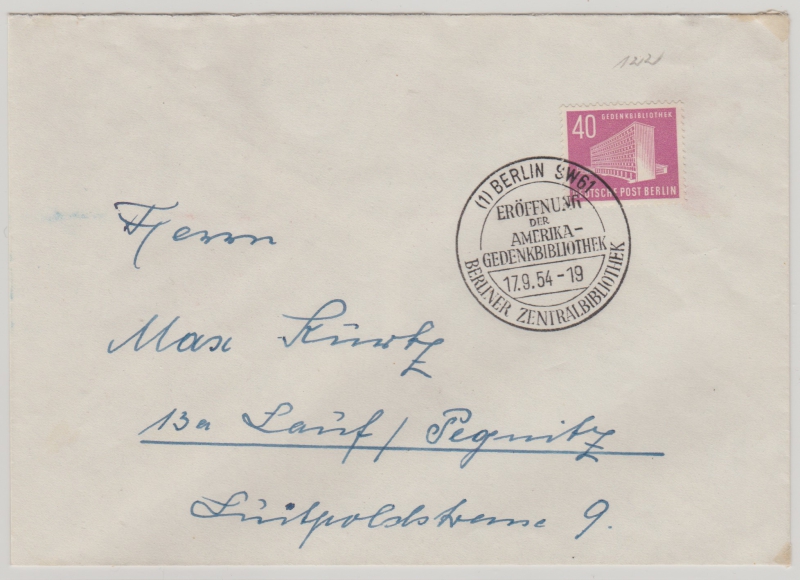 1221
40
GEDENKBIBLIOTHEK
DEUTSCHE POST BERLIN
(1) BERLIN SW61
ERÖFFNUNG
DER
AMERIKA-
GEDENKBIBLIOTHEK
17.9.54-19
BERLINER ZENTRALBIBLIOTHEK
Herrn
Max Kürtz
13a Lauf / Pegnitz
Luitpoldstrasse 9.